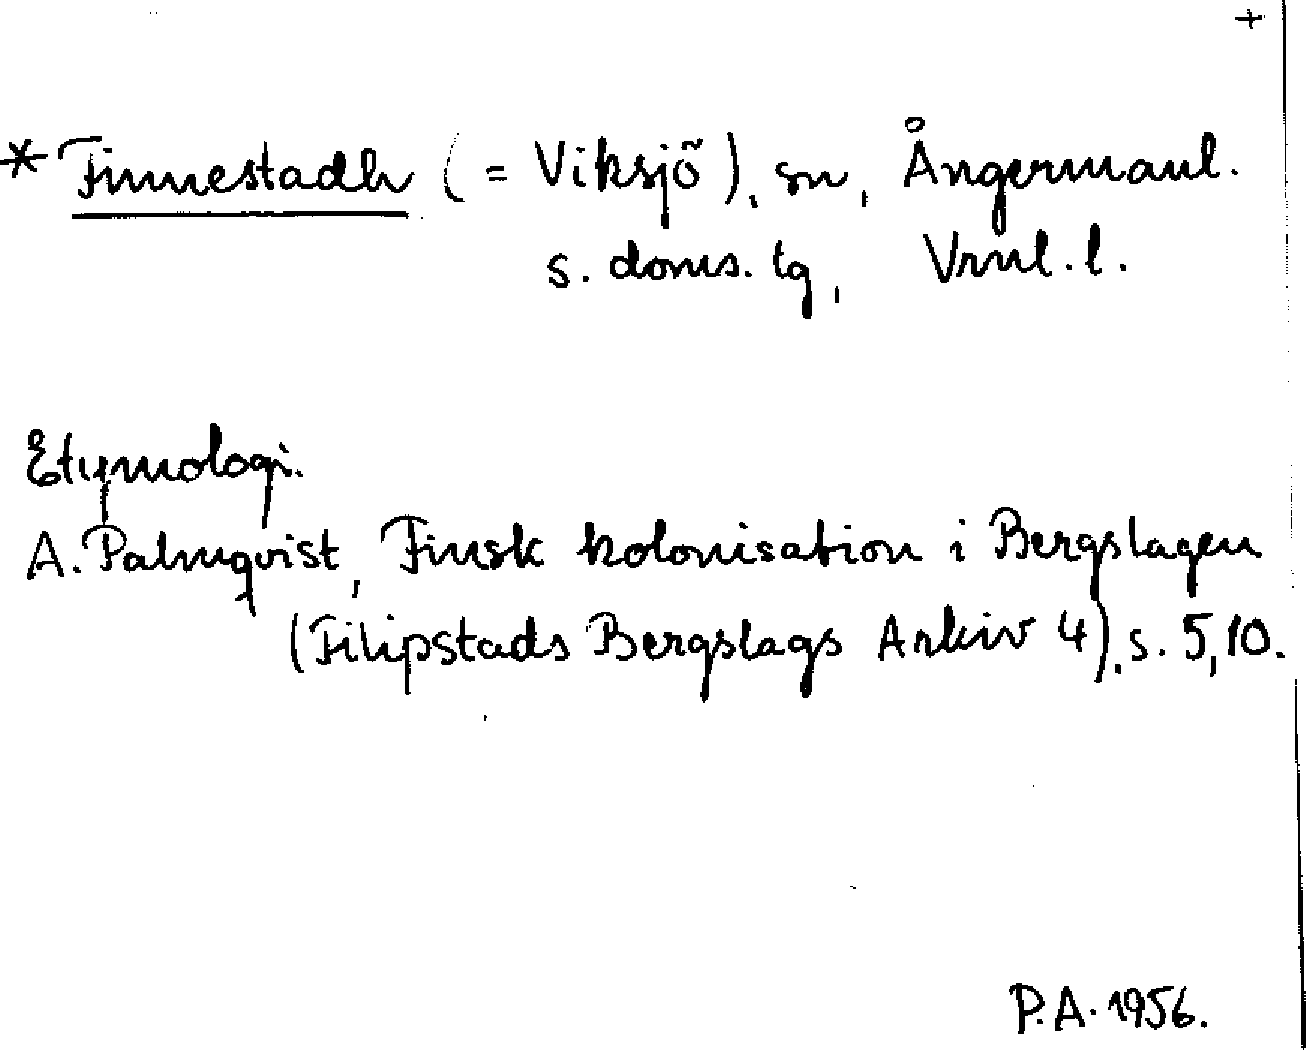 +
* Finnestadh (= Viksjö), sn, Ångermanl.
s. doms. lg, Vrnl. l.
Etymologi.
A. Palmqvist, Finsk kolonisation i Bergslagen
(Filipstads Bergslags Arkiv 4), s. 5, 10.
P. A. 1956.